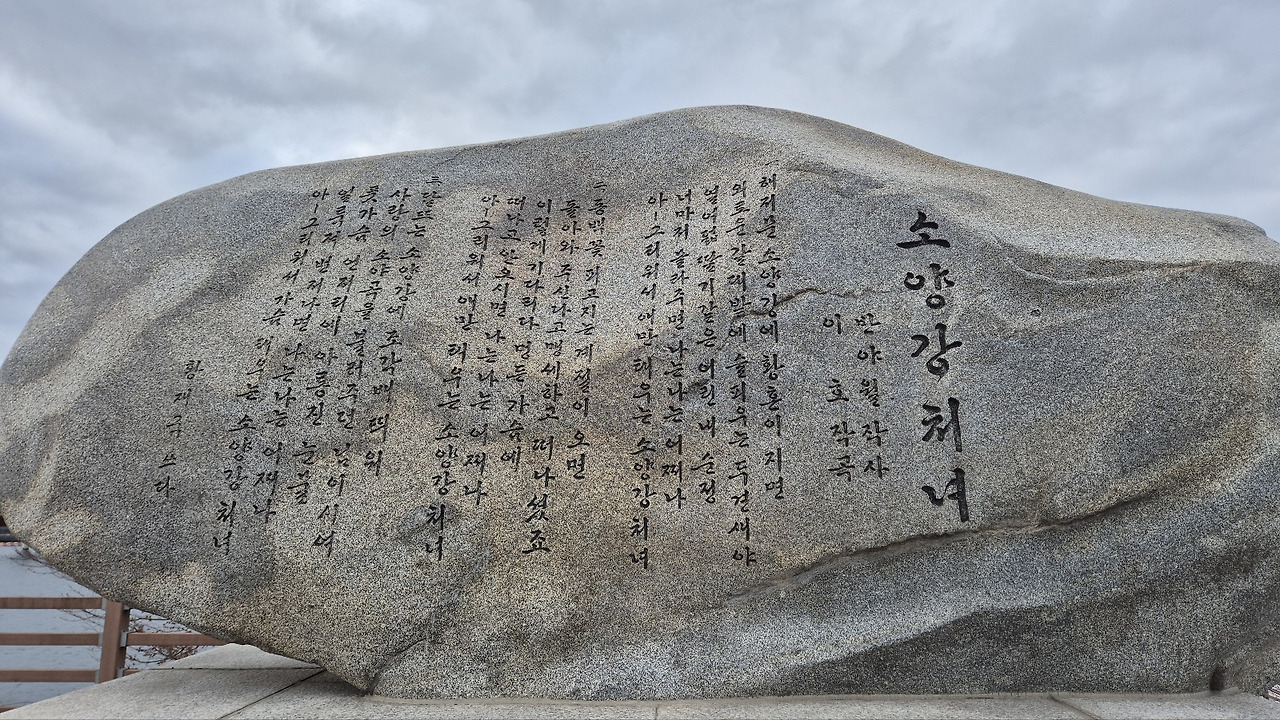 소양강처녀
반야월 작사
이 호 작곡
一 해저문 소양강에 황혼이 지면
외로운 갈대밭에 슬피우는 두견새야
열여덟 딸기같은 어린 내 순정
너마저 몰라주면 나는나는 어쩌나
아-그리워서 애만 태우는 소양강 처녀
二 동백꽃 피고지는 계절이 오면
돌아와 주신다고 맹세하고 떠나셨죠
이렇게 기다리다 멍든 가슴에
떠나고 안오시면 나는나는 어쩌나
아-그리워서 애만 태우는 소양강 처녀
三 달뜨는 소양강에 조각배 띄워
사랑의 소야곡을 불러주던 님이시여
풋가슴 언저리에 아롱진 눈물
얼룩져 번져나면 나는나는 어쩌나
아-그리워서 가슴 태우는 소양강 처녀
황재국 쓰다